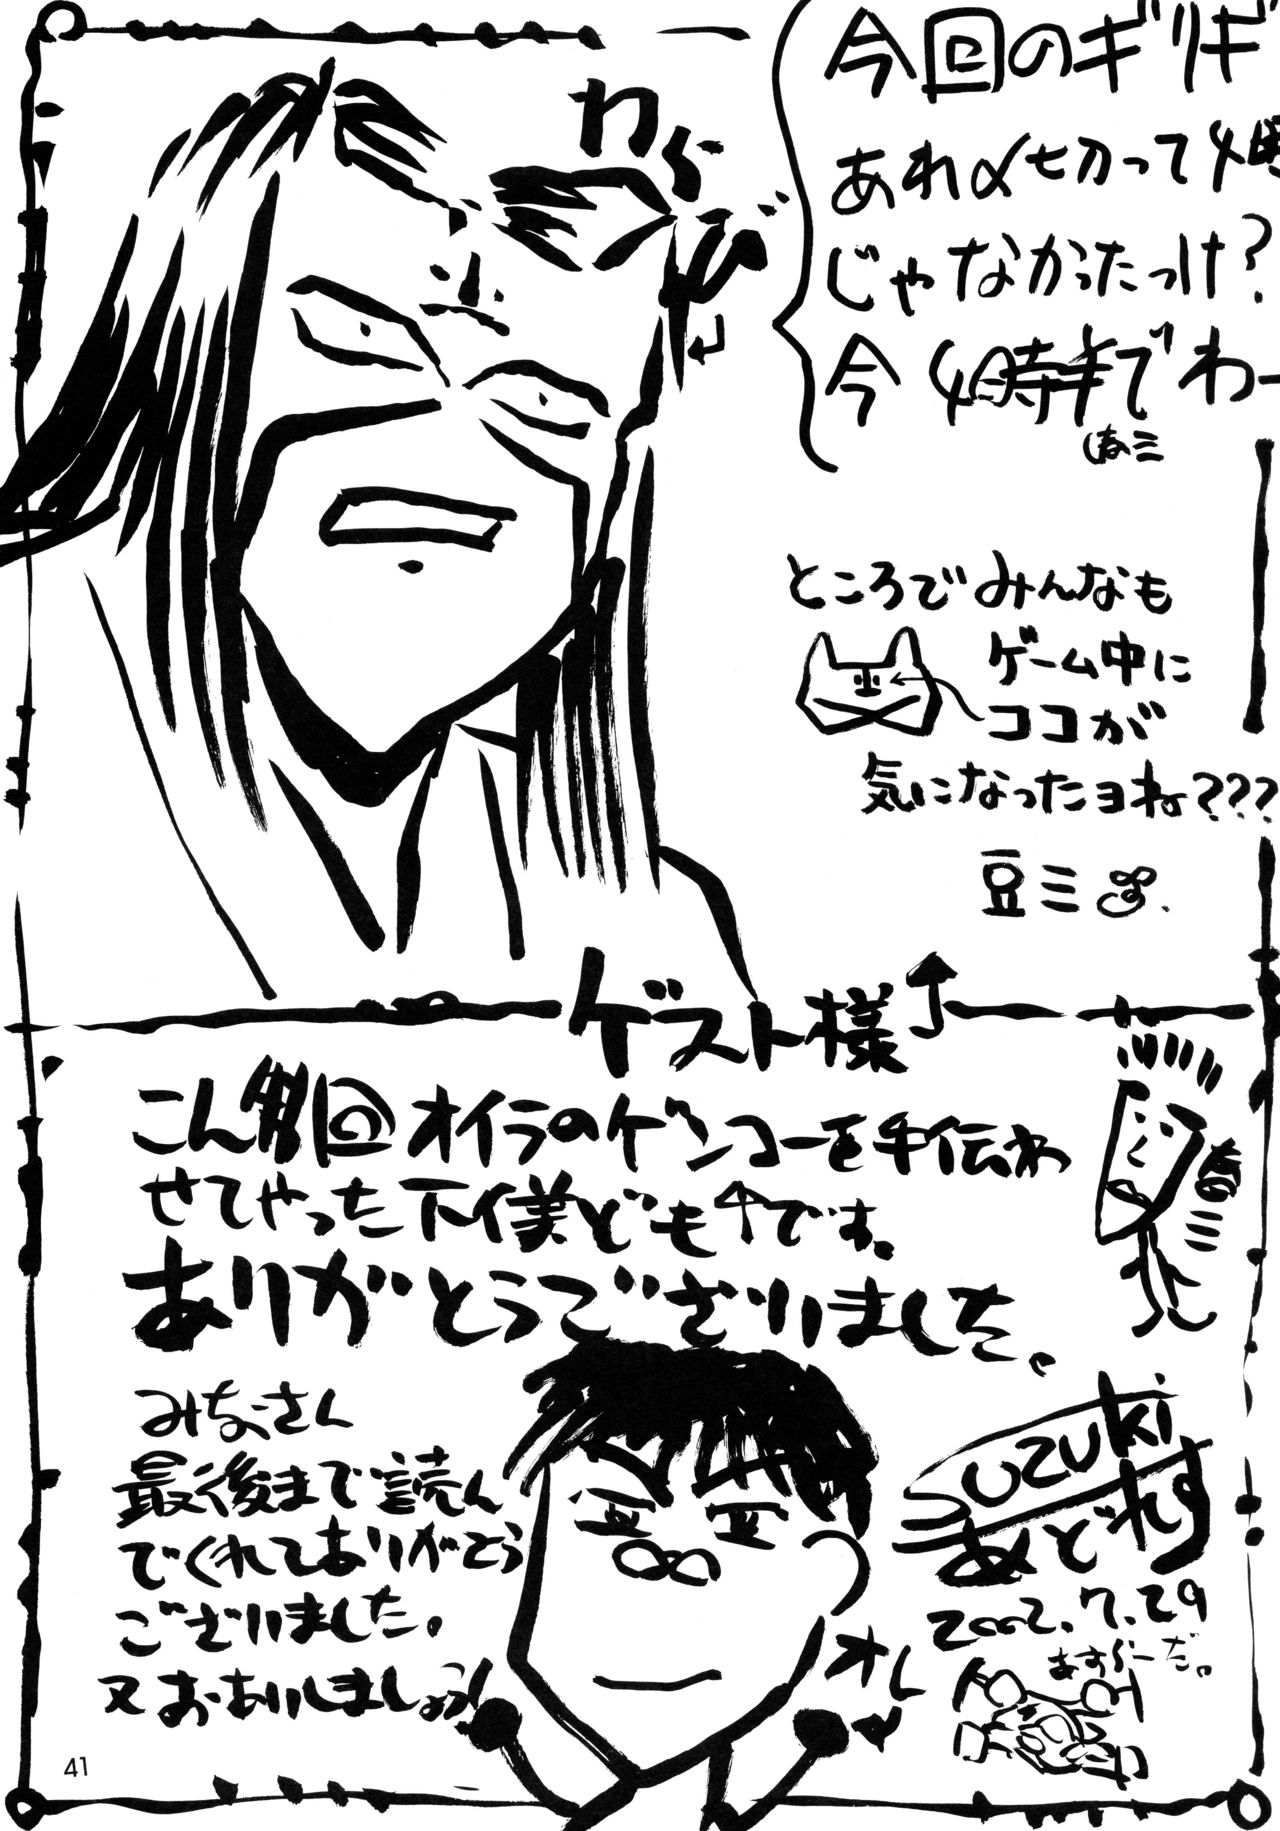 今回のギリギ
あれ〆切って4時
じゃなかったっけ?
今4時半でわー
わらび
ところでみんなも
ゲーム中に
ココが
気になったヨね???
豆ミ
ゲスト様↑
こん回オイラのゲンコーを手伝わ
せてやった下僕ども↑です。
ありがとうございました。
春ミ
みなさん
最後まで読ん
でくれてありがとう
ございました。
又おあいしましょう!
オレ
SUZUKI
あどれす
2002.7.29
41